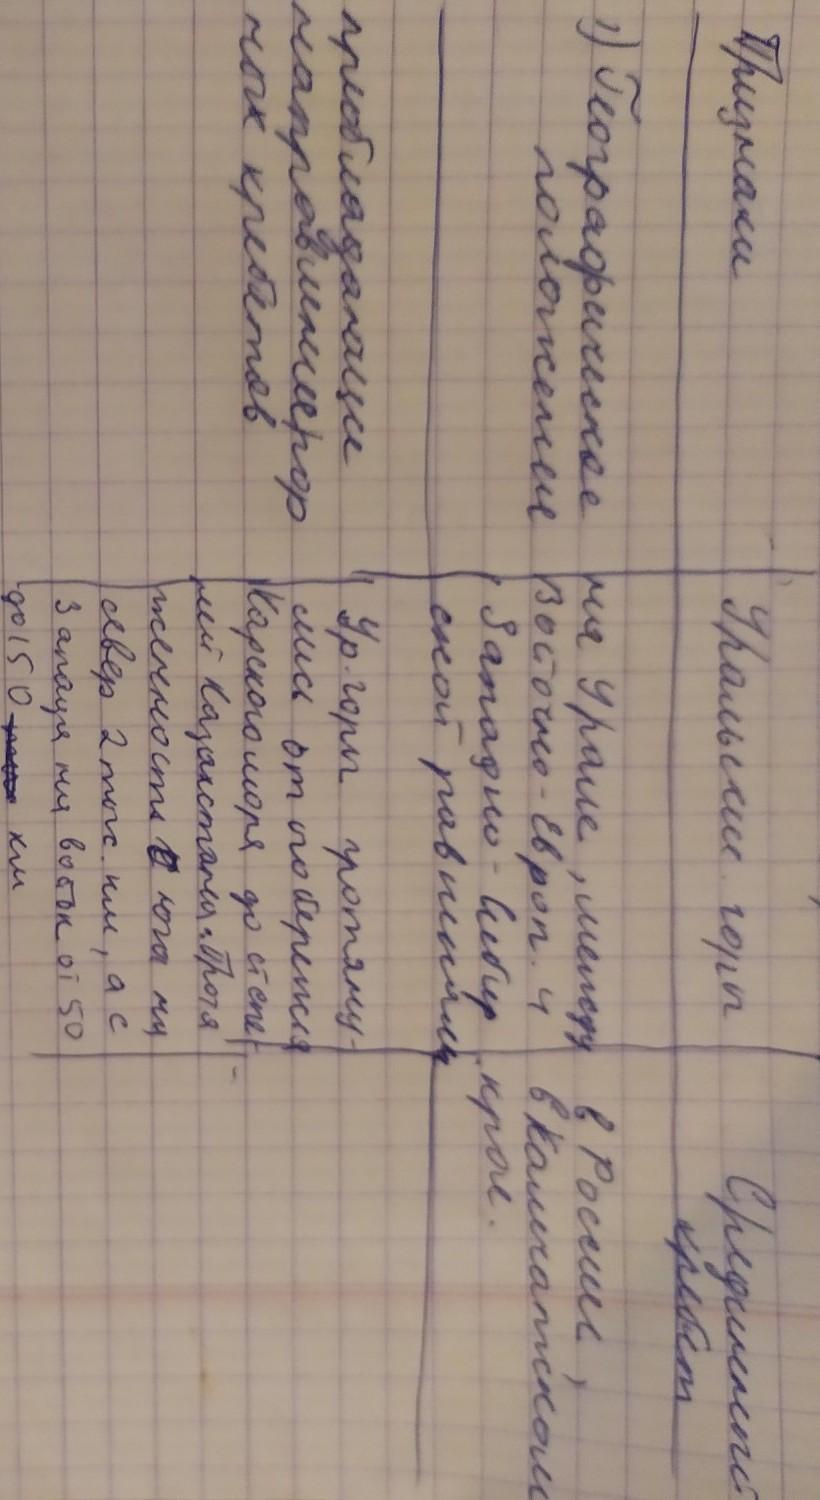 Признаки
Уральские горы
Срединный
хребет
1) Географическое
положение
на Урале, между
Восточно-Европ. и
Западно-Сибир
ской равнинами
в России,
в Камчатском
крае.
преобладающие
направления гор
ных хребтов
Ур. горы протяну-
лись от побережья
Карского моря до степ
ей Казахстана. Протя
женность с юга на
север 2 тыс. км, а с
запада на восток от 50
до 150 км